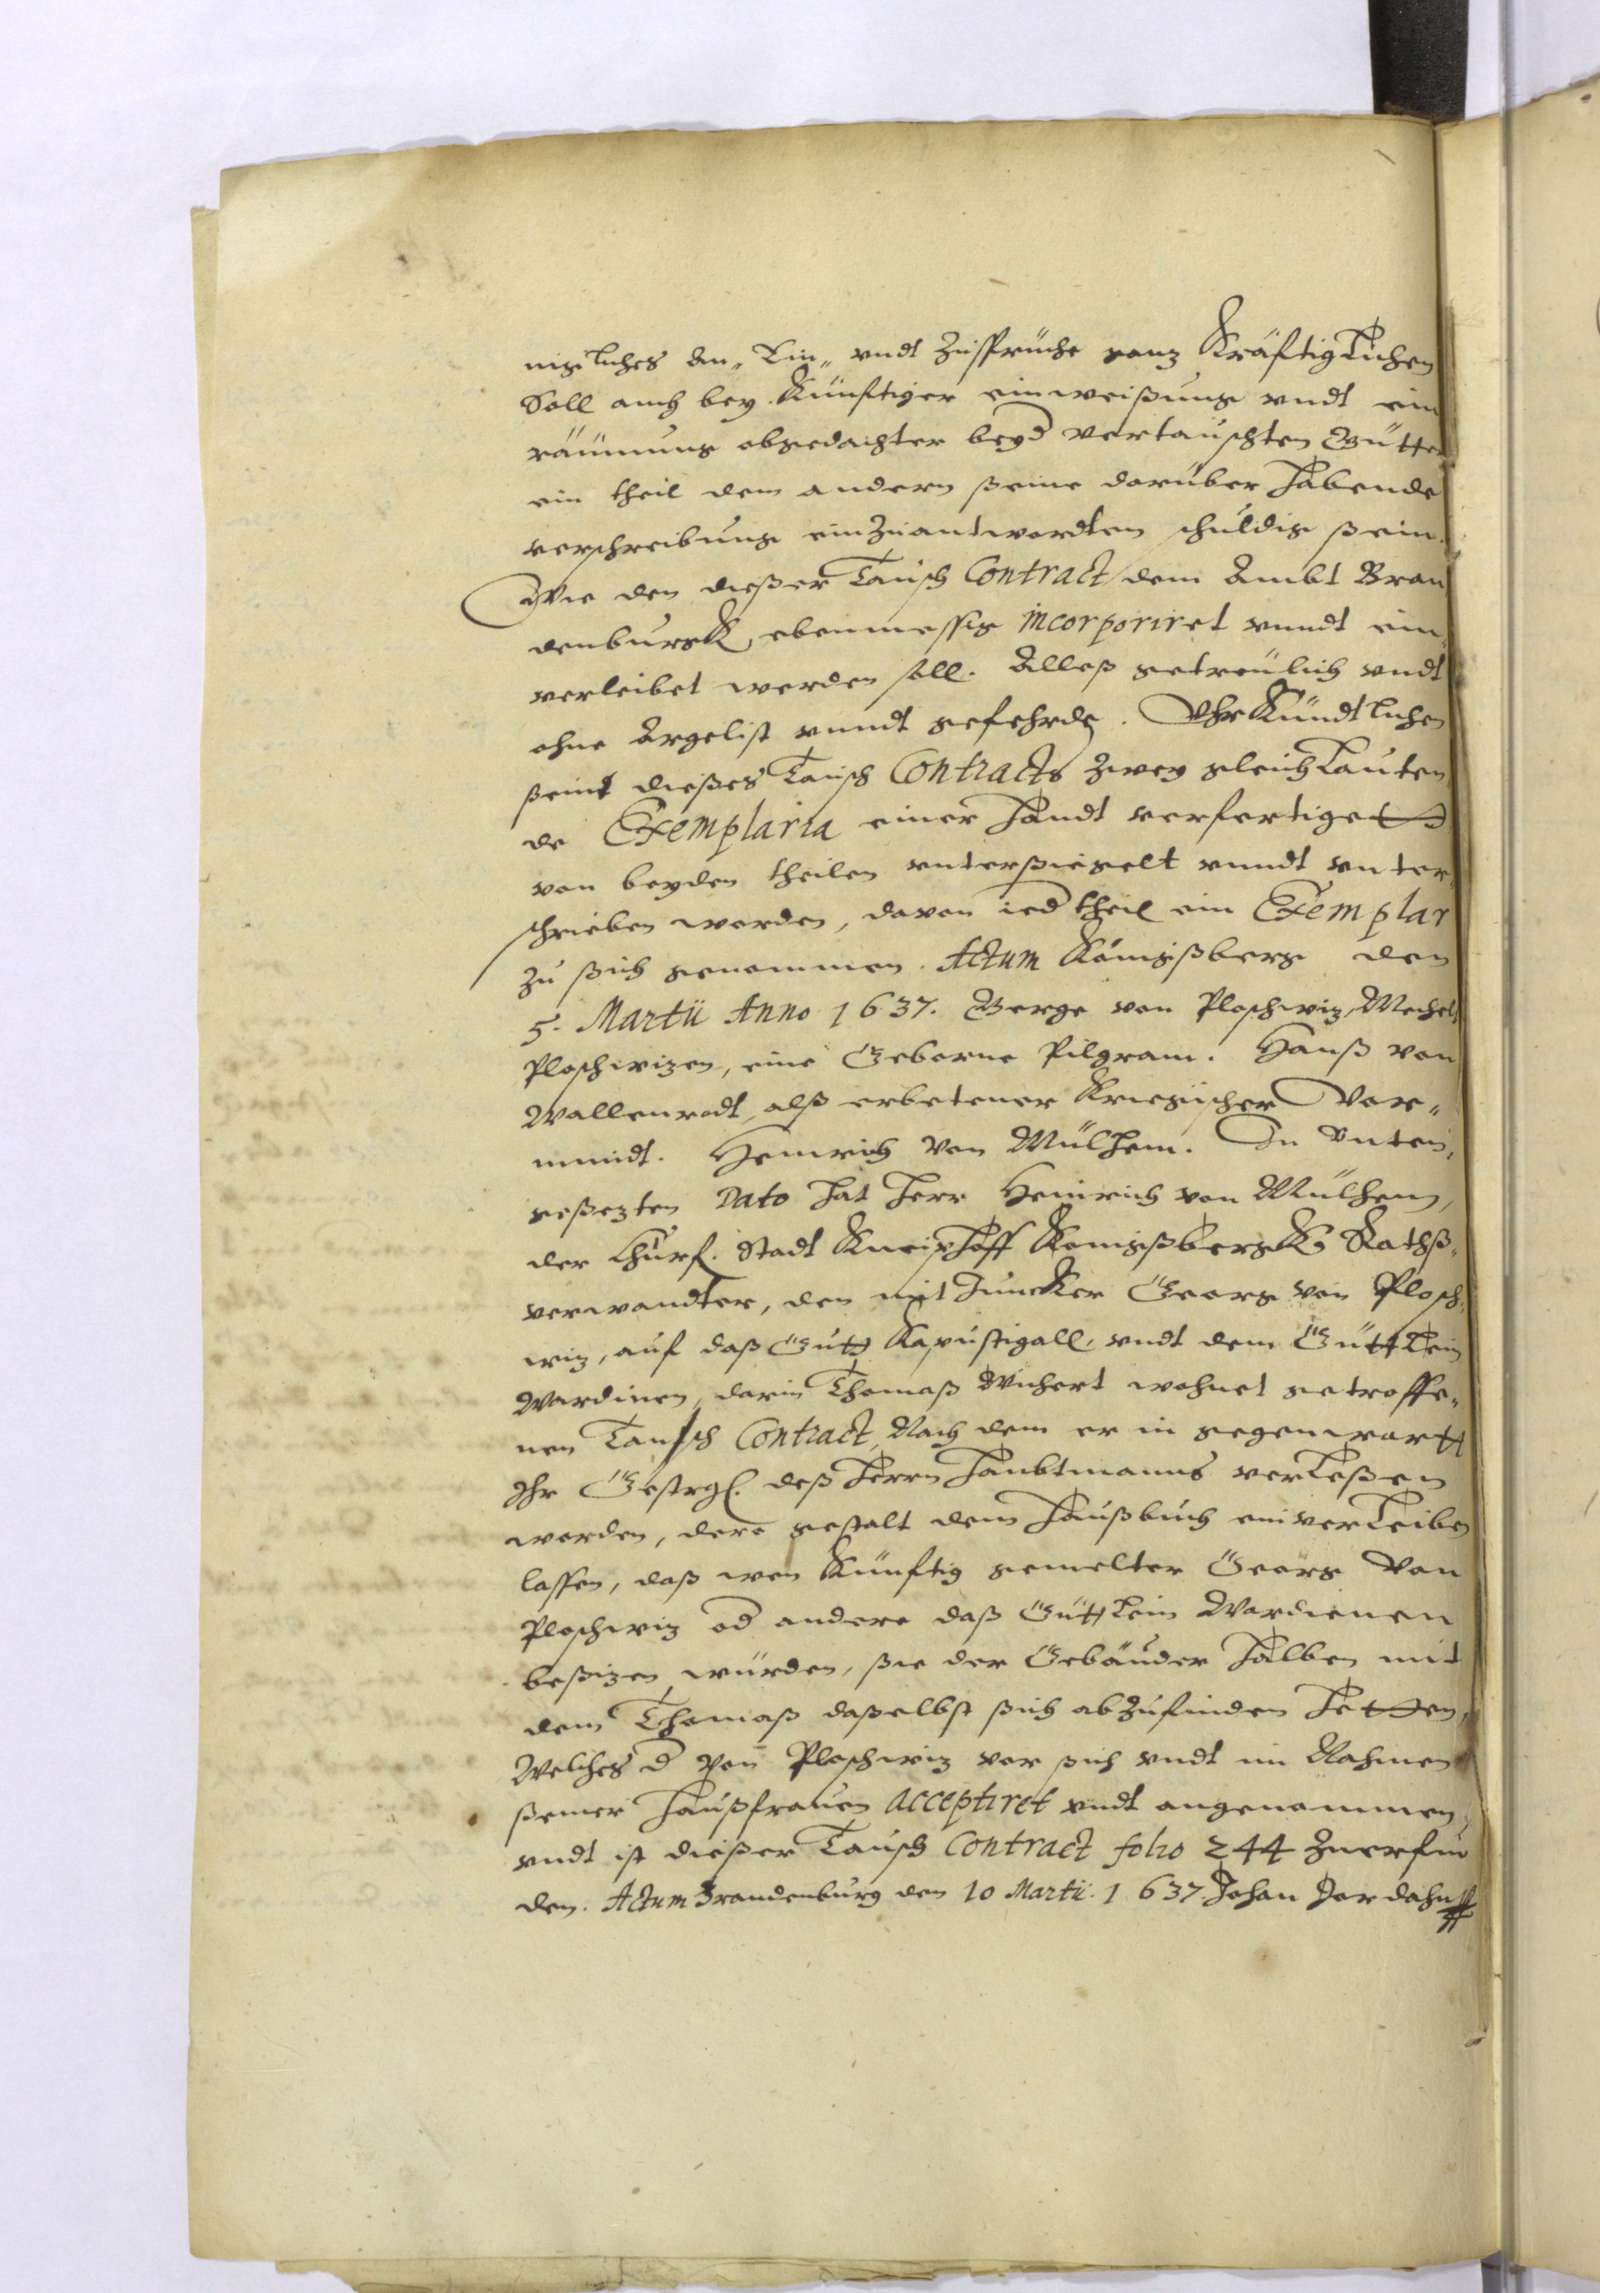 nigliches An„ Ein„ vndt Zuspruche ganz Kräftiglichen
Soll auch bey Künfftiger einweißung vndt ein
räumung obgedachter beyd vertauschten Gütter
ein theil dem andern ßeine darüber habende
verschreibung einzuantwordten schuldig ßein.
Wie den dießer Tausch Contract dem Ambt Bran
denburgk ebenmessig incorporiret vnndt ein
verleibet werden soll. Alleß getreülich vndt
ohne Argelist vnndt gefehrde. VhrKündtlichen
ßeint dießes Tausch Contracts zwey gleich Lauten
de Exemplaria einer Handt verfertiget
von beyden theilen vnterßiegelt vnndt vnter
schrieben worden, davon ied theil ein Exemplar
zu ßich genommen. Actum Königßberg den
5. Martii Anno 1637. Gerge von Ploschwiz, Mechel
Ploschwizen, eine Geborne Pilgram. Hanß von
Wallenrodt, alß erbetener Kriegischer Vor„
mundt. Heinrich von Mülhem. In Unten
geßezten Dato hat Herr Heinrich von Mülhem,
der Churf. Stadt Kneiphoff Konigßbergk Rathß„
verwandter, den mit Juncker Georg von Plosch„
wiz, auf daß Gutt Kapustigall, vndt dem Güttlein
Wardinen, darin Thomaß Wichert wohnet getroffe„
nen Tausch Contract, Nach dem er in gegenwartt
Ihr Gestrgl. deß Herrn Haubtmanns verleßen
worden, dero gestalt dem Haußbuch einverleiben
lassen, daß wen Künftig gemelter Georg von
Ploschwiz od andere daß Güttlein Wardienen
beßizen würden, ßie der Gebäuder halben mit
dem Thomaß daßelbst ßich abzufinden hetten,
Welches d von Ploschwiz vor ßich vndt im Nahmen
ßeiner Haußfrauen acceptiret vndt angenommen,
vndt ist dießer Tausch Contract folio 244 zuerfin
den. Actum Brandenburg den 10 Martii. 1637 Johan Jordahn